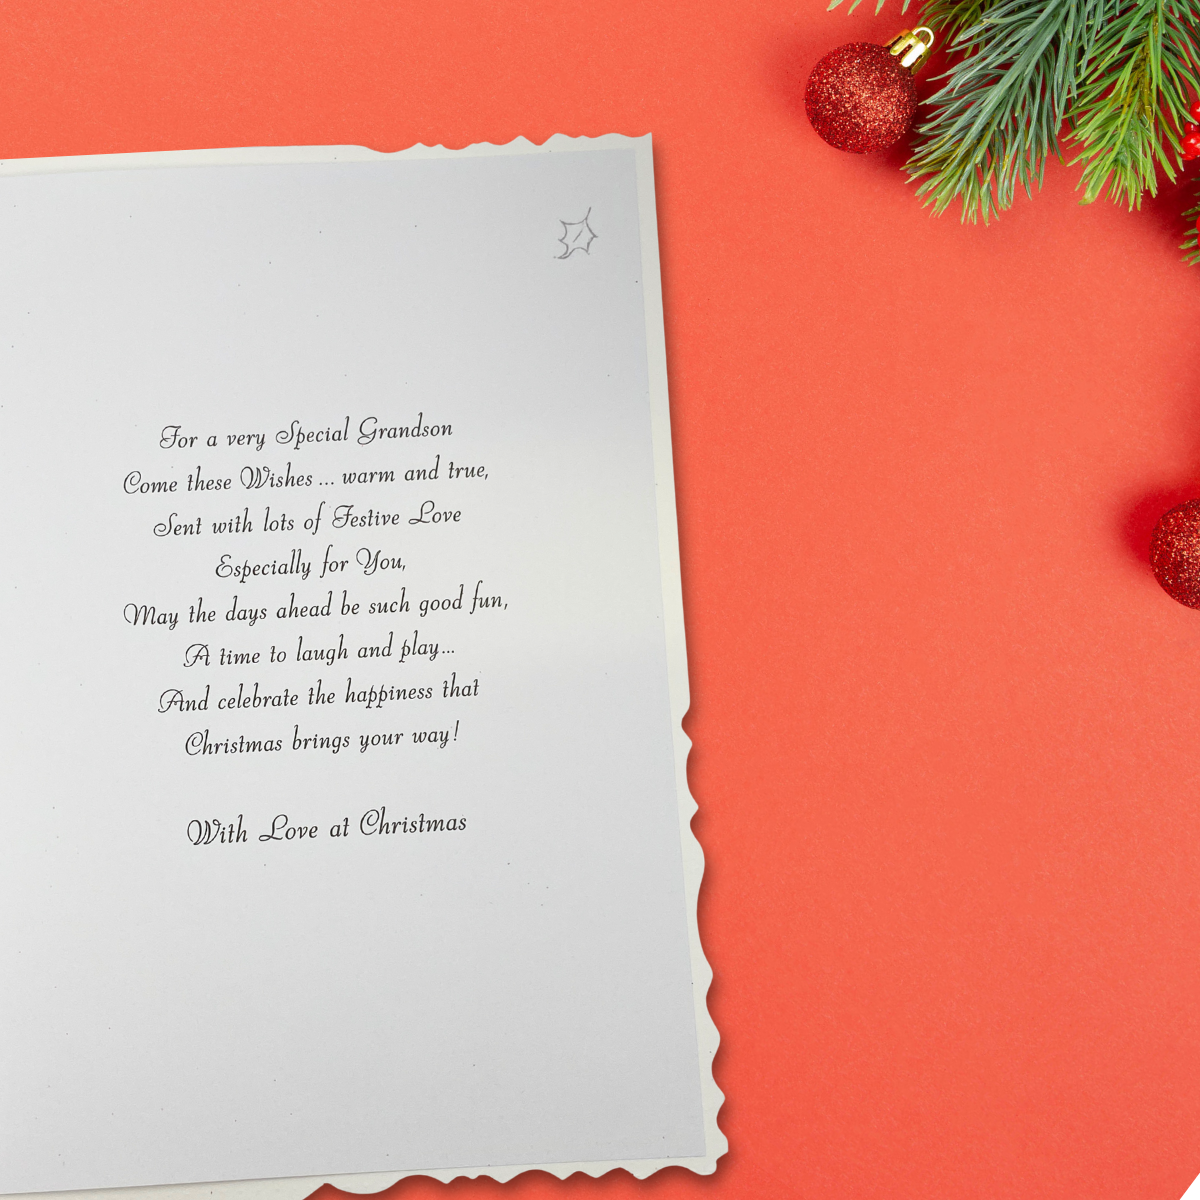 For a very Special Grandson
Come these Wishes ... warm and true,
Sent with lots of Festive Love
Especially for You,
May the days ahead be such good fun,
A time to laugh and play...
And celebrate the happiness that
Christmas brings your way!
With Love at Christmas